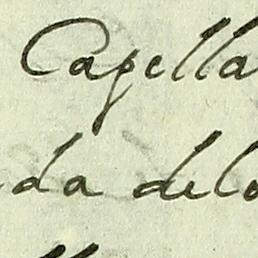 Capella
da delo